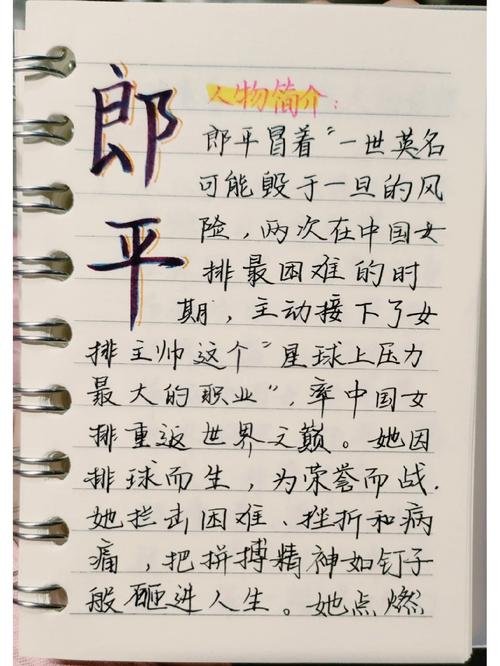 郎平
人物简介：
郎平冒着“一世英名
可能毁于一旦的风
险，两次在中国女
排最困难的时
期，主动接下了女
排主帅这个“星球上压力
最大的职业”，率中国女
排重返世界之巅。她因
排球而生，为荣誉而战.
她拦击困难、挫折和病
痛，把拼搏精神如钉子
般砸进人生。她点燃